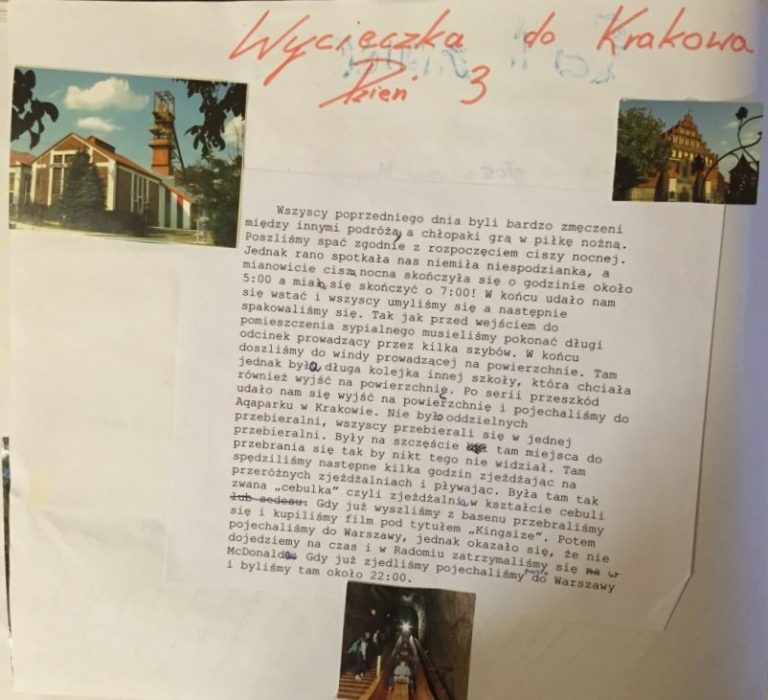 Wycieczka do Krakowa
Dzień 3
Wszyscy poprzedniego dnia byli bardzo zmęczeni
między innymi podróżą, a chłopaki grą w piłkę nożną.
Poszliśmy spać zgodnie z rozpoczęciem ciszy nocnej.
Jednak rano spotkała nas niemiła niespodzianka, a
mianowicie cisza nocna skończyła się o godzinie około
5:00 a miała się skończyć o 7:00! W końcu udało nam
się wstać i wszyscy umyliśmy się a następnie
spakowaliśmy się. Tak jak przed wejściem do
pomieszczenia sypialnego musieliśmy pokonać długi
odcinek prowadzący przez kilka szybów. W końcu
doszliśmy do windy prowadzącej na powierzchnie. Tam
jednak była długa kolejka innej szkoły, która chciała
również wyjść na powierzchnię. Po serii przeszkód
udało nam się wyjść na powierzchnię i pojechaliśmy do
Aqaparku w Krakowie. Nie było oddzielnych
przebieralni, wszyscy przebierali się w jednej
przebieralni. Były na szczęście tam miejsca do
przebrania się tak by nikt tego nie widział. Tam
spędziliśmy następne kilka godzin zjeżdżając na
przeróżnych zjeżdżalniach i pływając. Była tam tak
zwana „cebulka” czyli zjeżdżalnia w kształcie cebuli
lub sedesu. Gdy już wyszliśmy z basenu przebraliśmy
się i kupiliśmy film pod tytułem „Kingsize”. Potem
pojechaliśmy do Warszawy, jednak okazało się, że nie
dojedziemy na czas i w Radomiu zatrzymaliśmy się na w
McDonaldzie. Gdy już zjedliśmy pojechaliśmy do Warszawy
i byliśmy tam około 22:00.